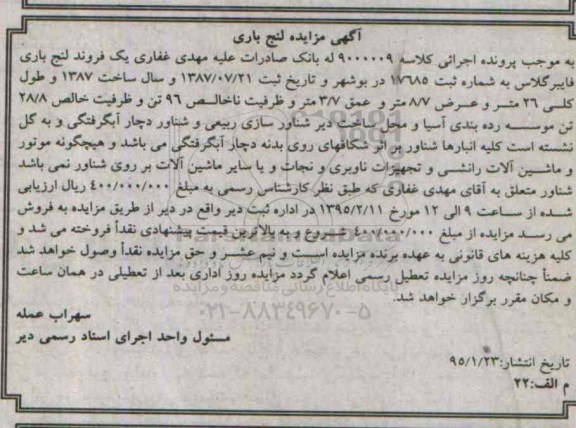 آگهی مزایده لنج باری
به موجب پرونده اجرائی کلاسه ۹۰۰۰۰۰۹ له بانک صادرات علیه مهدی غفاری یک فروند لنج باری
فایبرگلاس به شماره ثبت ۱۷۶۸۵ در بوشهر و تاریخ ثبت ۱۳۸۷/۰۷/۲۱ و سال ساخت ۱۳۸۷ و طول
کلی ۲۶ متر و عرض ۸/۷ متر و عمق ۳/۷ متر و ظرفیت ناخالص ۹۶ تن و ظرفیت خالص ۲۸/۸
تن موسسه رده بندی آسیا و محل ساخت دیر شناور سازی ربیعی و شناور دچار آبگرفتگی و به گل
نشسته است کلیه انبارها شناور بر اثر شکافهای روی بدنه دچار آبگرفتگی می باشد و هیچگونه موتور
و ماشین آلات رانشی و تجهیزات ناوبری و نجات و یا سایر ماشین آلات بر روی شناور نمی باشد
شناور متعلق به آقای مهدی غفاری که طبق نظر کارشناس رسمی به مبلغ ۴۰۰/۰۰۰/۰۰۰ ریال ارزیابی
شده از ساعت ۹ الی ۱۲ مورخ ۱۳۹۵/۲/۱۱ در اداره ثبت دیر واقع در دیر از طریق مزایده به فروش
می رسد مزایده از مبلغ ۴۰۰/۰۰۰/۰۰۰ شروع و به بالاترین قیمت پیشنهادی نقداً فروخته می شد و
کلیه هزینه های قانونی به عهده برنده مزایده است و نیم عشر و حق مزایده نقداً وصول خواهد شد
ضمناً چنانچه روز مزایده تعطیل رسمی اعلام گردد مزایده روز اداری بعد از تعطیلی در همان ساعت
و مکان مقرر برگزار خواهد شد.
پایگاه اطلاع رسانی مناقصه و مزایده
۰۲۱-۸۸۳۴۹۶۷۰-۵
سهراب عمله
مسئول واحد اجرای اسناد رسمی دیر
تاریخ انتشار: ۹۵/۱/۲۳
م الف: ۲۲